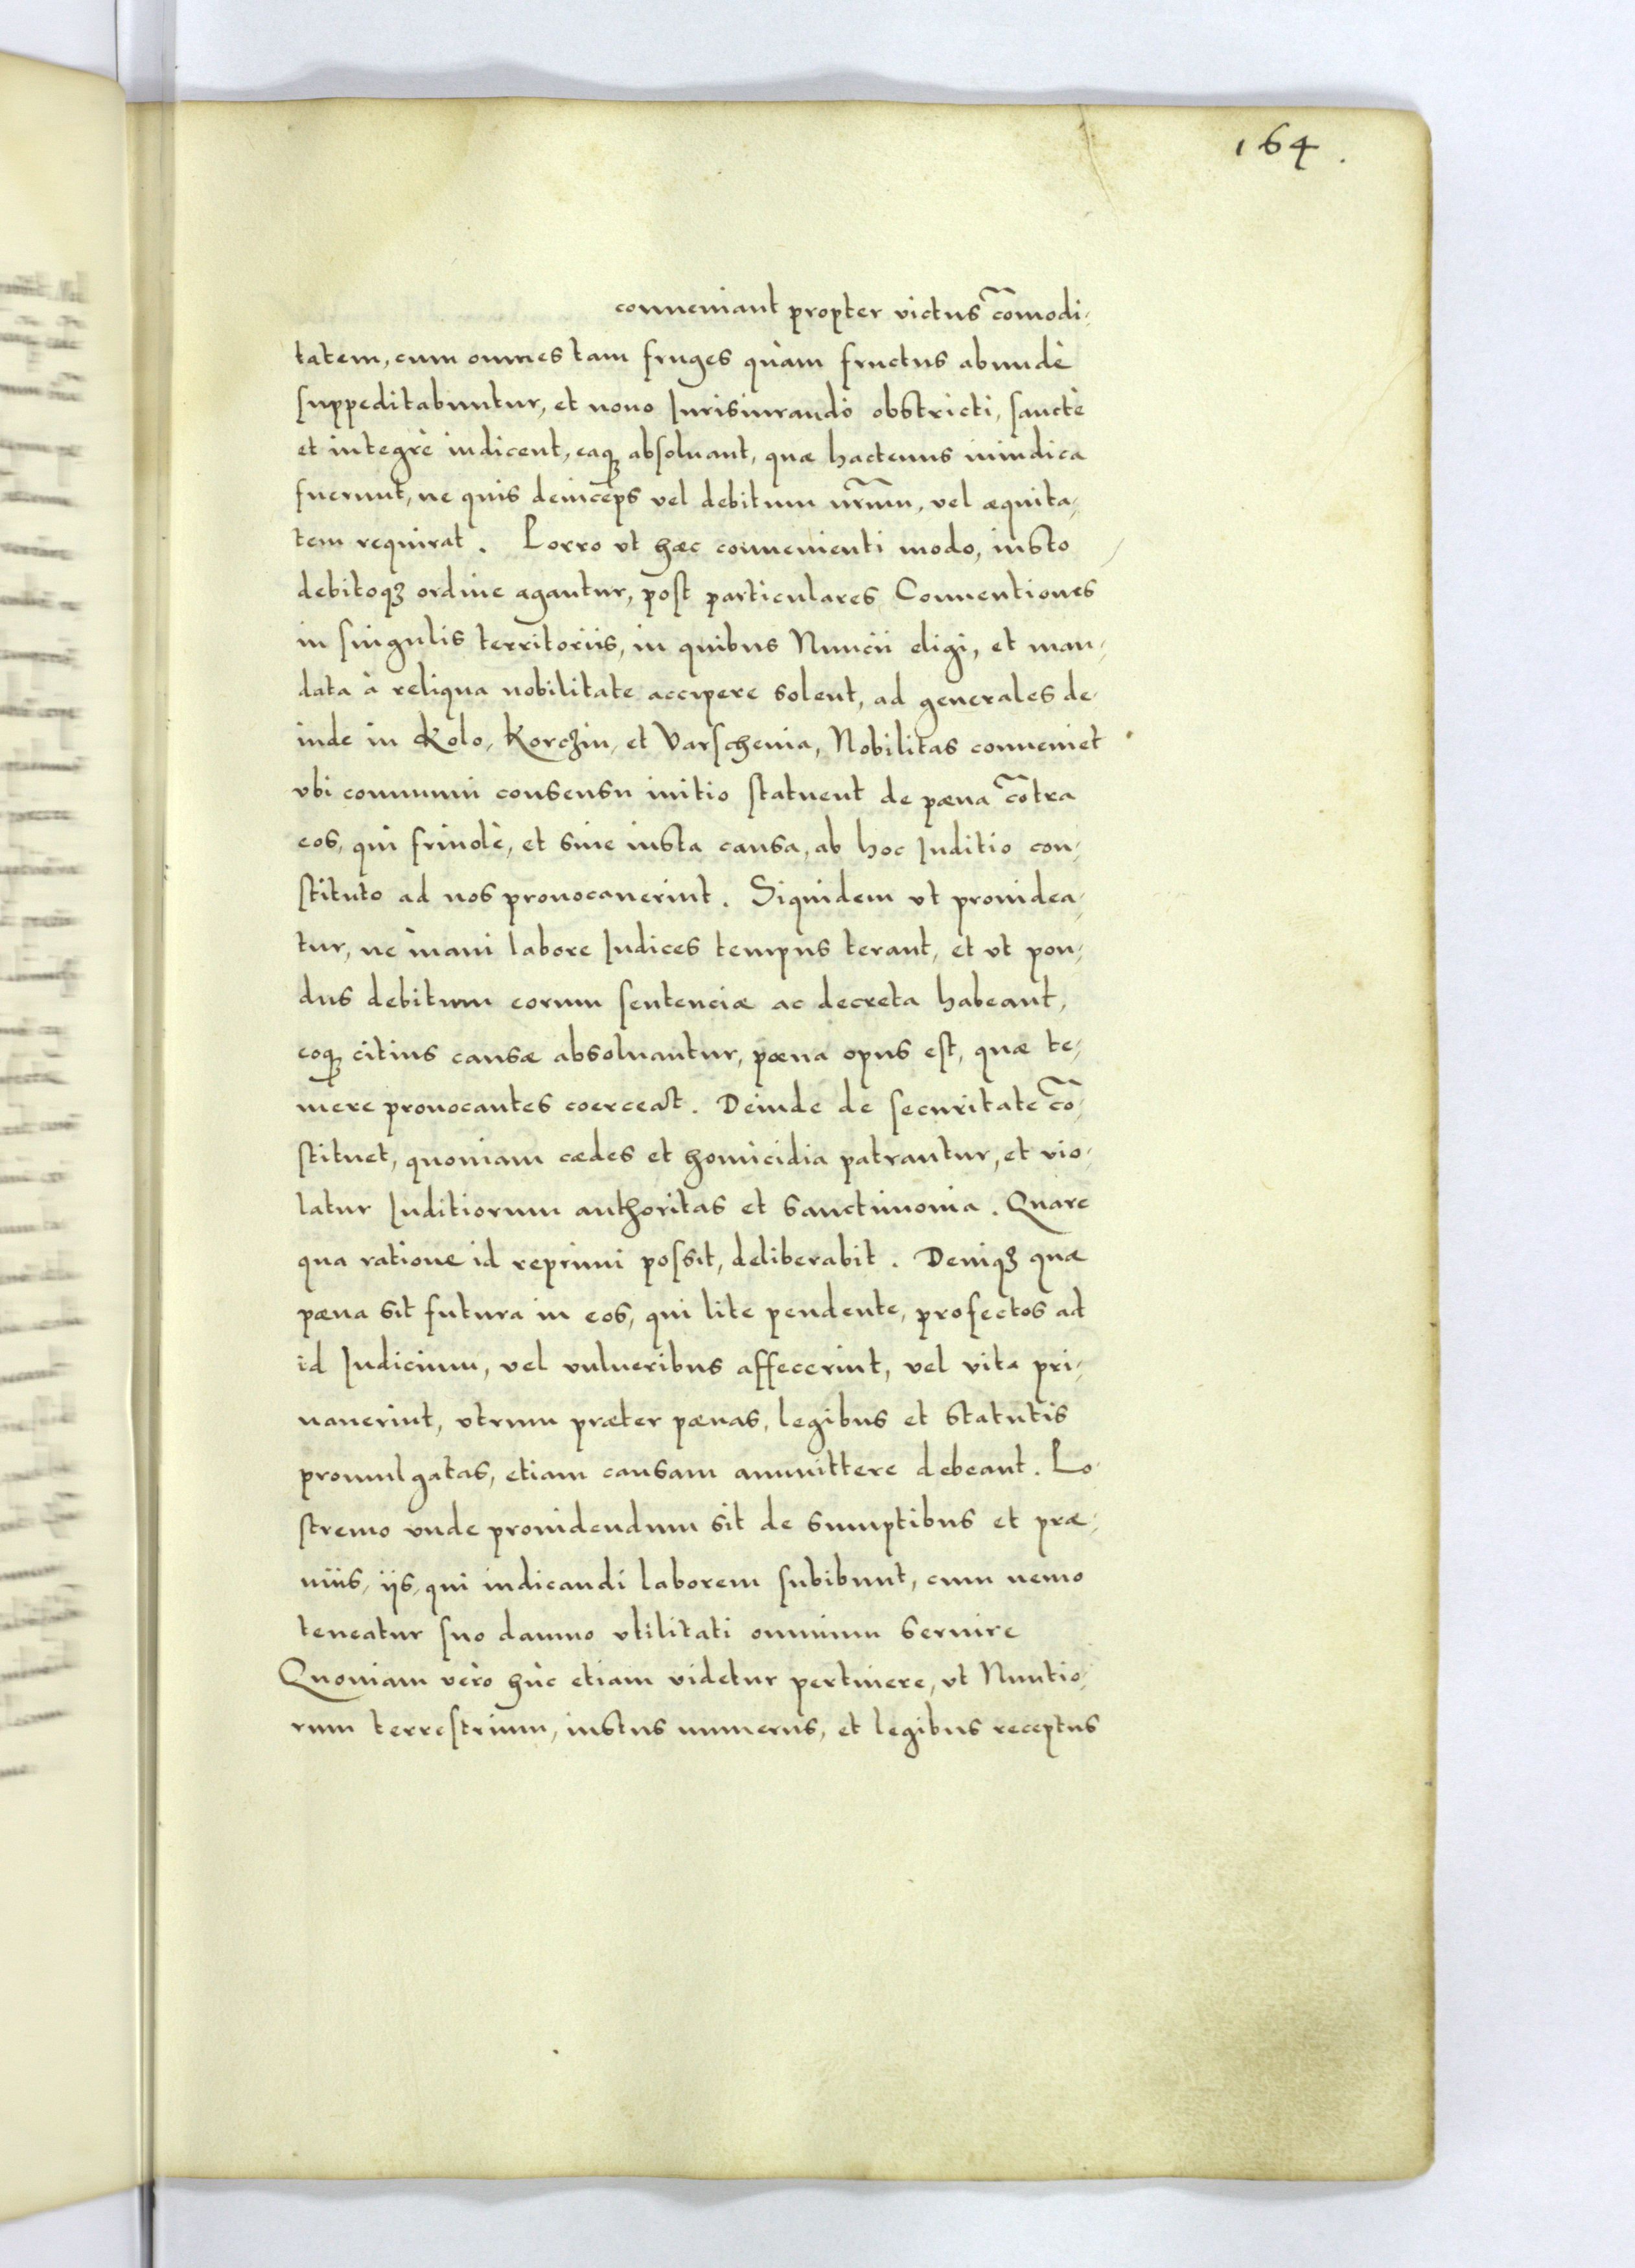 164.
conueniant propter victus cõmodi,
tatem, cum omnes tam fruges quàm fructus abundè
suppeditabuntur, et nouo Iurisiurando obstricti, sanctè
et integrè iudicent, eaqꝫ absoluant, quæ hactenus iniudica
fuerunt, ne quis deinceps vel debitum nr̃um, vel æquita,
tem requirat. Porro vt hæc conuenienti modo, iusto
debitoqꝫ ordine agantur, post particulares Conuentiones
in singulis territoriis, in quibus Nuncii eligi, et man,
data à reliqua nobilitate accipere solent, ad generales de,
inde in Kolo, Korczin, et Varschenia, Nobilitas conueniet
vbi communi consensu initio statuent de pæna cõtra
eos, qui friuolè, et sine iusta causa, ab hoc Iuditio con,
stituto ad nos prouocauerint. Siquidem vt prouidea,
tur, ne inani labore Iudices tempus terant, et vt pon,
dus debitum eorum sentenciæ ac decreta habeant,
eoqꝫ citius causæ absoluantur, pœna opus est, quæ te,
mere prouocantes coerceat. Deinde de securitate cõ,
stituet, quoniam cædes et homicidia patrantur, et vio,
latur Iuditiorum authoritas et sanctimonia. Quare
qua ratione id reprimi possit, deliberabit. Deniqꝫ quæ
pæna sit futura in eos, qui lite pendente, profectos ad
id Iudicium, vel vulneribus affecerint, vel vita pri,
uauerint, vtrum præter pænas, legibus et statutis
promulgatas, etiam causam ammittere debeant. Po,
stremo vnde prouidendum sit de sumptibus et præ,
miis, ijs, qui iudicandi laborem subibunt, cum nemo
teneatur suo damno vtilitati omnium seruire
Quoniam verò hùc etiam videtur pertinere, vt Nuntio,
rum terrestrium, iustus numerus, et legibus receptus